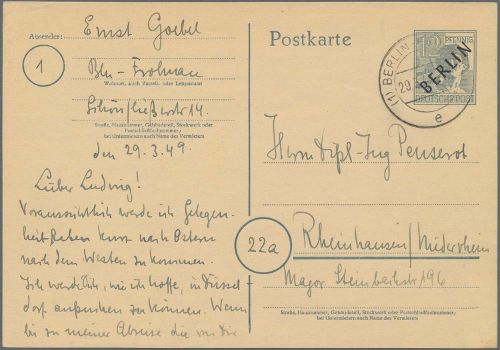 Absender:
Ernst Goebel
1
Bln-Frohnau
Wohnort, auch Zustell- oder Leitpostamt
Schönfließerstr 14.
Straße, Hausnummer, Gebäudeteil, Stockwerk oder
Postschließfachnummer;
bei Untermietern auch Name des Vermieters
den 29.3.49.
Lieber Ludwig!
Voraussichtlich werde ich Gelegen-
heit haben kurz nach Ostern
nach dem Westen zu kommen.
Ich werde Dich, wie ich hoffe, in Düssel
dorf aufsuchen zu können. Wenn
bis zu meiner Abreise die von Dir
Postkarte
12 PFENNIG
BERLIN
DEUTSCHE POST
(1) BERLIN
29.
e
Herrn Dipl-Ing Penserot
22a
Rheinhausen/Niederrhein
Straße, Hausnummer, Gebäudeteil, Stockwerk oder Postschließfachnummer;
bei Untermietern auch Name des Vermieters